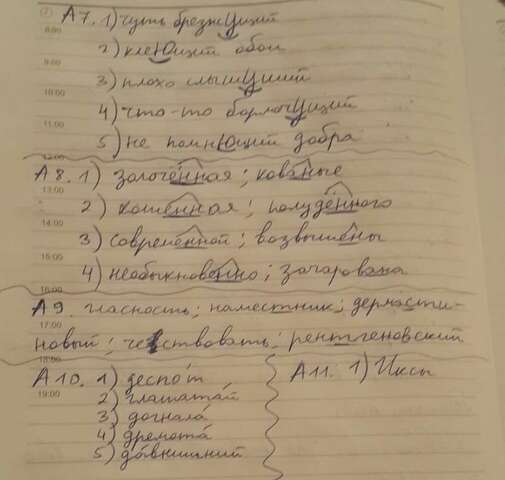 А7. 1) чуть брезжУщий
8:00
2) клеЮщий обои
9:00
3) плохо слышУщий
10:00
4) что-то бормочУщий
11:00
5) не помнЮщий добра
12:00
А8. 1) золочённая; кованые
13:00
2) кошенная; полуденного
14:00
3) современной; возвышены
15:00
4) необыкновенно; зачарована
16:00
А9. гласность; наместник; дермасти-
17:00
новый; чествовать; рентгеновский
18:00
А10. 1) деспо́т А11. 1) Иксы
19:00
2) глашата́й
3) догнала́
4) дремота́
5) да́внишний